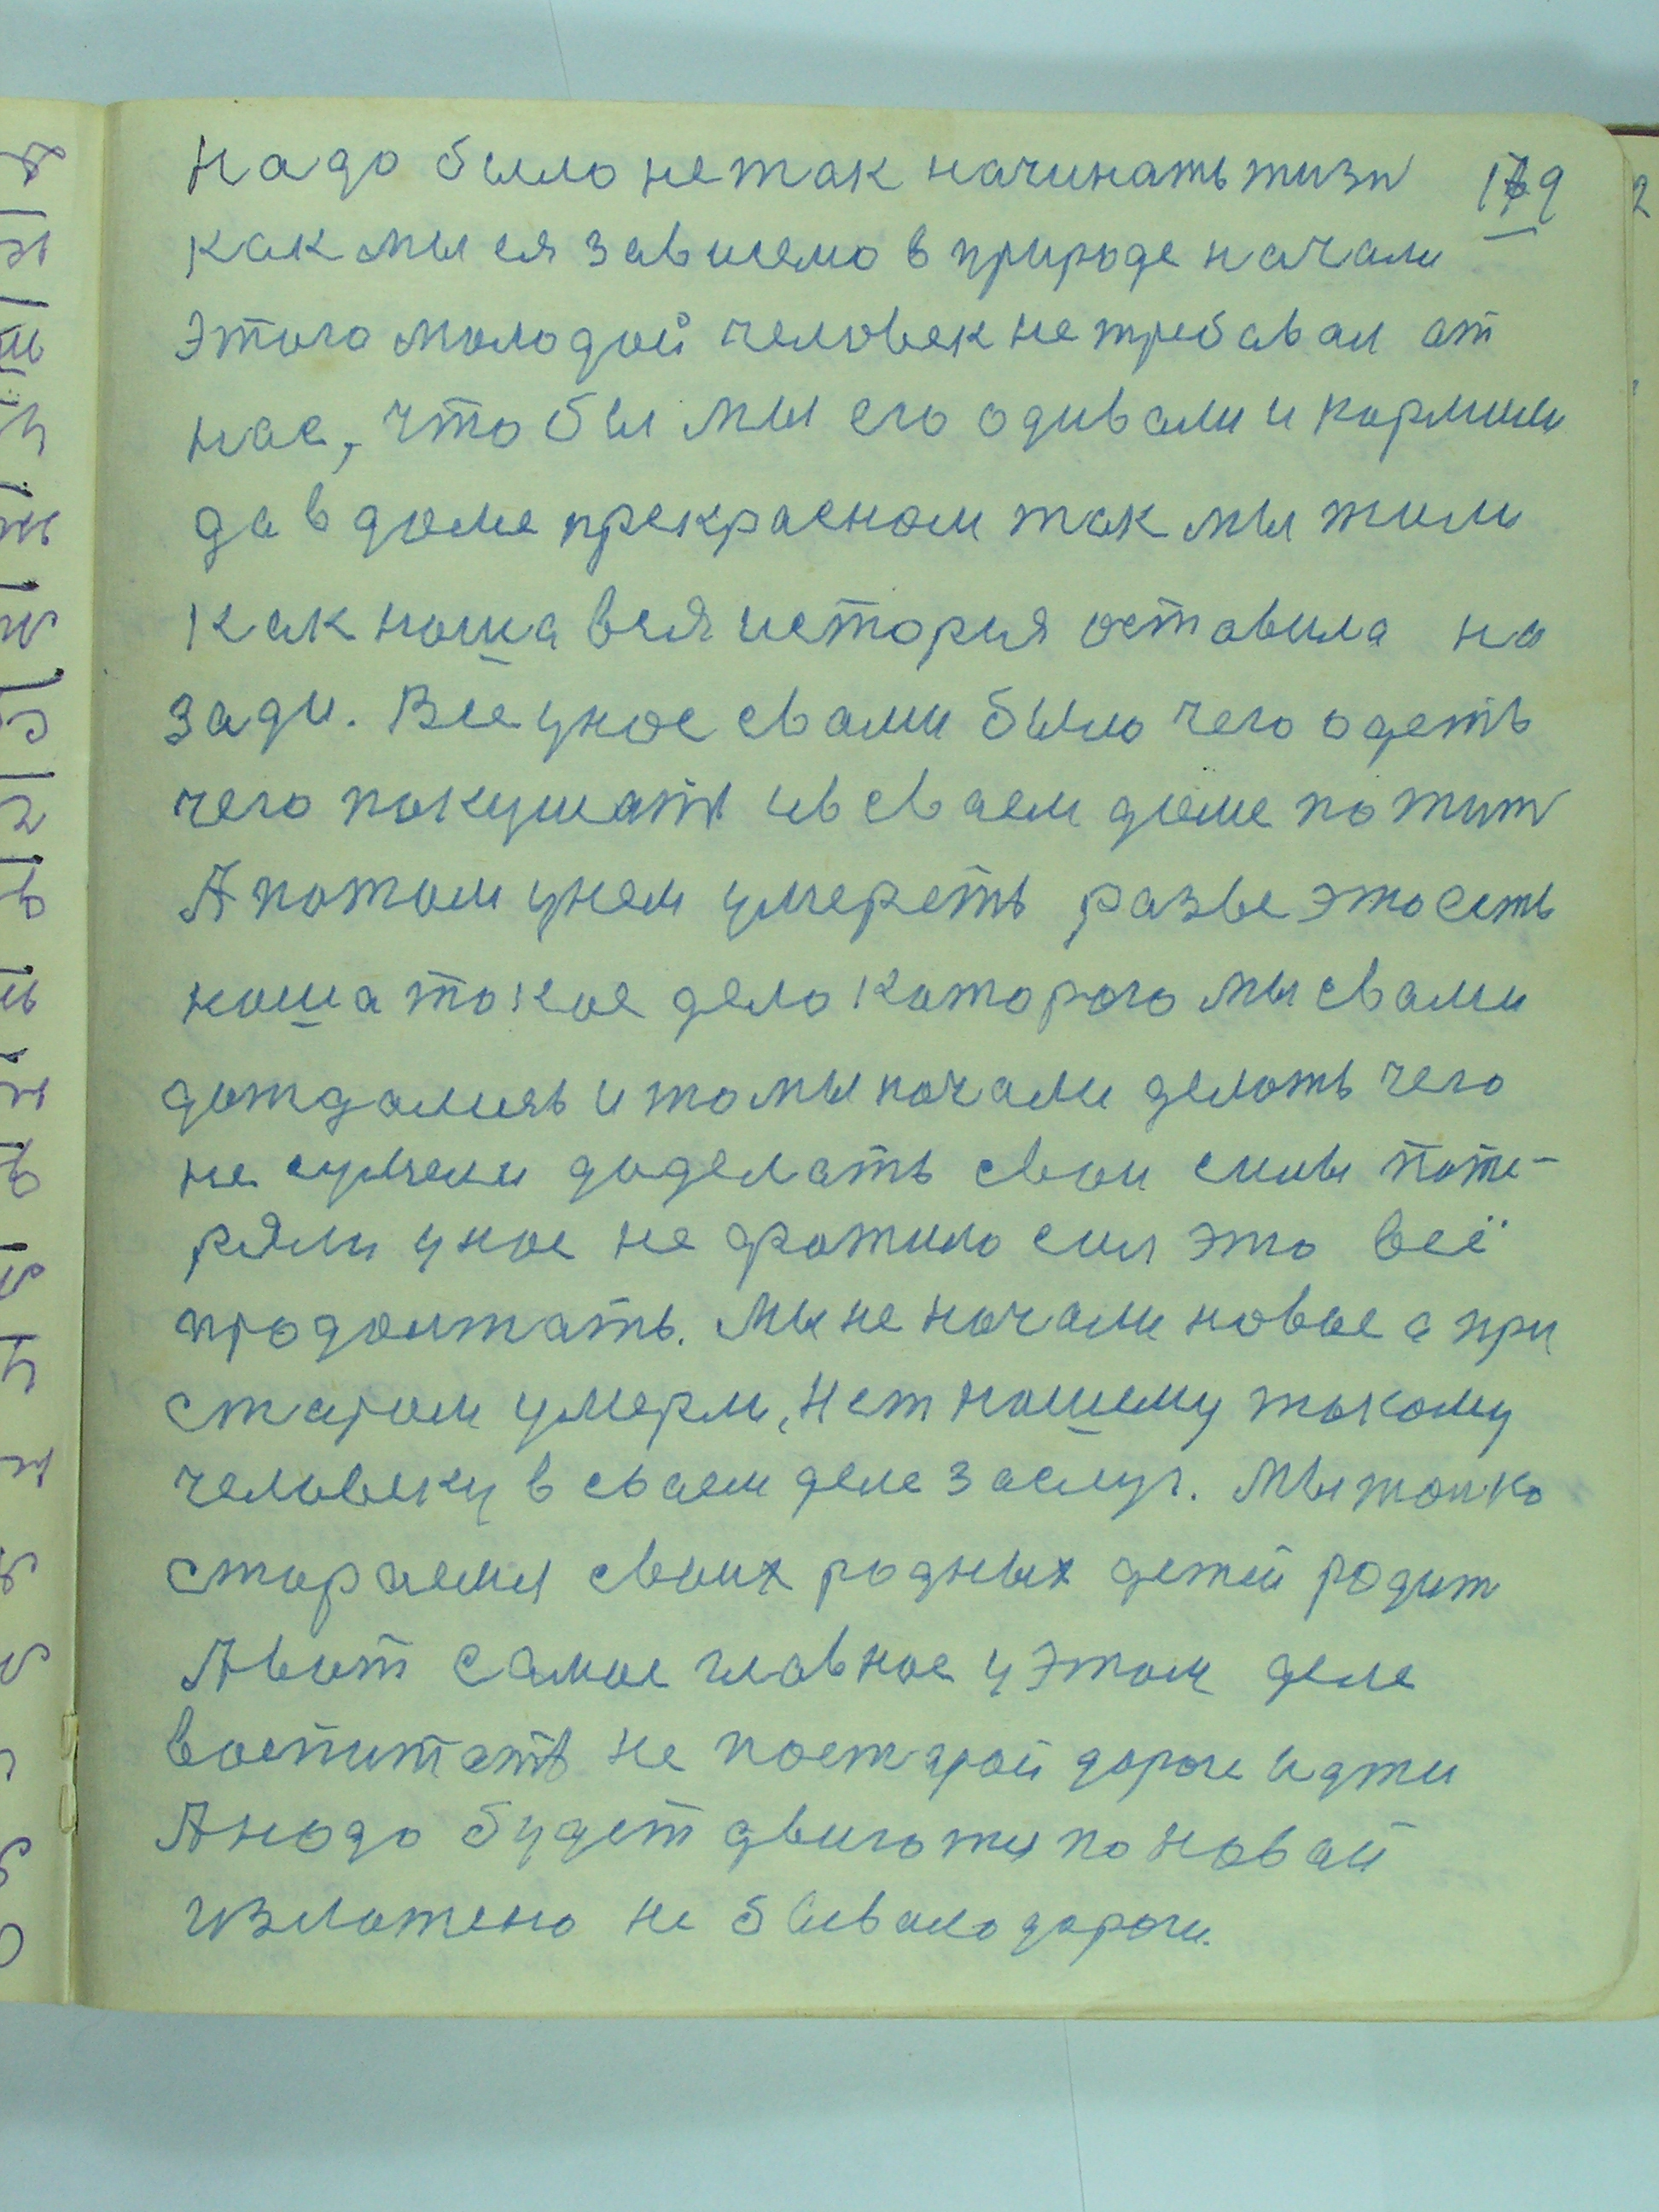 надо было нетак начинать жизн 179
как мы ея зависемо в природе начали
этого молодой человек нетребавал от
нас, что бы мы его одивали и кормили
да в доме прекрасном так мы жили
как наша вся история оставила на
зади. Все унас свами было чего одеть
чего покушать ив сваем доме пожит
А потом унем умереть разве это есть
наша такое дело которого мы свами
дождались и то мы начали делать чего
не сумели доделать свои силы поте-
ряли унас не фатило сил это всё
продолжать. Мы не начали новое а при
старом умерли, нет нашему такому
человеку в сваем деле заслуг. Мы толко
стараемся своих родных детей родит
Авот самое главное у этом деле
воспитать не постарой дороге идти
А надо будет двигатся по новай
изложено не бывало дороги.